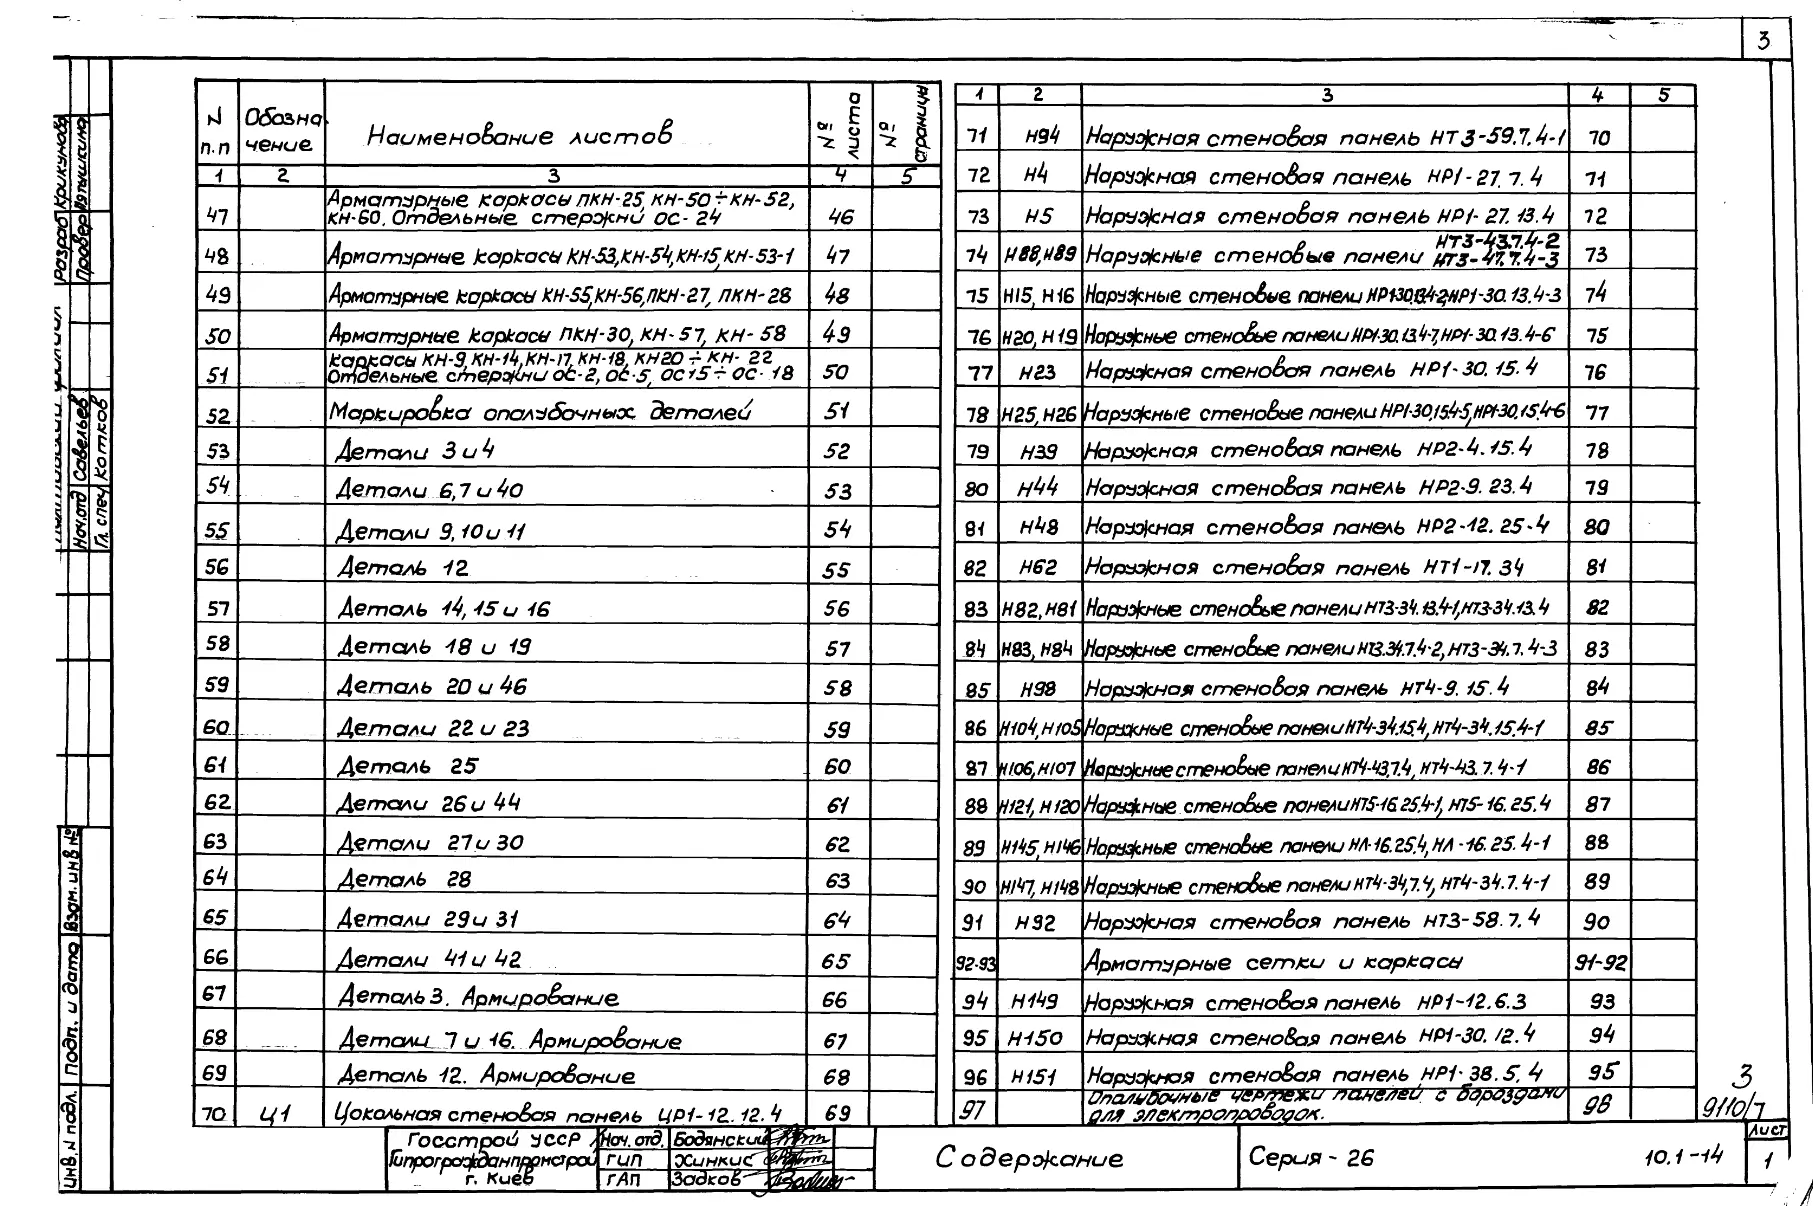 3
N п.п Обозначение Наименование листов №º листа №º страницы
1 2 3 4 5
47 Арматурные каркасы ПКН-25, КН-50÷КН-52,
КН-60. Отдельные стержни ОС-24 46
48 Арматурные каркасы КН-53,КН-54,КН-15,КН-53-1 47
49 Арматурные каркасы КН-55,КН-56,ПКН-27, ПКН-28 48
50 Арматурные каркасы ПКН-30, КН-57, КН-58 49
51 Каркасы КН-9,КН-14,КН-17,КН-18, КН20÷КН-22
Отдельные стержни ОС-2, ОС-5, ОС15÷ОС-18 50
52 Маркировка опалубочных деталей 51
53 Детали 3 и 4 52
54 Детали 6,7 и 40 53
55 Детали 9,10 и 11 54
56 Деталь 12 55
57 Деталь 14, 15 и 16 56
58 Деталь 18 и 19 57
59 Деталь 20 и 46 58
60 Детали 22 и 23 59
61 Деталь 25 60
62 Детали 26 и 44 61
63 Детали 27 и 30 62
64 Деталь 28 63
65 Детали 29 и 31 64
66 Детали 41 и 42 65
67 Деталь 3. Армирование 66
68 Детали 7 и 16. Армирование 67
69 Деталь 12. Армирование 68
70 Ц1 Цокольная стеновая панель ЦР1-12.12.4 69
1 2 3 4 5
71 Н94 Наружная стеновая панель НТ3-59.7.4-1 70
72 Н4 Наружная стеновая панель НР1-27.7.4 71
73 Н5 Наружная стеновая панель НР1-27.13.4 72
74 Н88,Н89 Наружные стеновые панели НТ3-43.7.4-2
НТ3-47.7.4-3 73
75 Н15, Н16 Наружные стеновые панели НР1-30.13.4-2,НР1-30.13.4-3 74
76 Н20, Н19 Наружные стеновые панели НР1-30.13.4-7,НР1-30.13.4-6 75
77 Н23 Наружная стеновая панель НР1-30.15.4 76
78 Н25,Н26 Наружные стеновые панели НР1-30.15.4-5,НР1-30.15.4-6 77
79 Н39 Наружная стеновая панель НР2-4.15.4 78
80 Н44 Наружная стеновая панель НР2-9.23.4 79
81 Н48 Наружная стеновая панель НР2-12.25-4 80
82 Н62 Наружная стеновая панель НТ1-17.34 81
83 Н82,Н81 Наружные стеновые панели НТ3-34.13.4-1,НТ3-34.13.4 82
84 Н83, Н84 Наружные стеновые панели НТ3.34.7.4-2, НТ3-34.7.4-3 83
85 Н98 Наружная стеновая панель НТ4-9.15.4 84
86 Н104,Н105 Наружные стеновые панели НТ4-34.15.4, НТ4-34.15.4-1 85
87 Н106,Н107 Наружные стеновые панели НТ4-43.7.4, НТ4-43.7.4-1 86
88 Н121, Н120 Наружные стеновые панели НТ5-16.25.4-1, НТ5-16.25.4 87
89 Н145, Н146 Наружные стеновые панели НЛ-16.25.4, НЛ-16.25.4-1 88
90 Н147, Н148 Наружные стеновые панели НТ4-34.7.4, НТ4-34.7.4-1 89
91 Н92 Наружная стеновая панель НТ3-58.7.4 90
92-93 Арматурные сетки и каркасы 91-92
94 Н149 Наружная стеновая панель НР1-12.6.3 93
95 Н150 Наружная стеновая панель НР1-30.12.4 94
96 Н151 Наружная стеновая панель НР1-38.5.4 95
97 Опалубочные чертежи панелей с бороздами
для электропроводок. 96
3
9110/7
Разраб Крикунова
Провер Лятышкина
Нач.отд Савельев
Гл. спец Котков
Взам.инв №
Подп. и дата
Инв.N подл.
Госстрой УССР
Гипрогражданпромстрой
г. Киев
Нач. отд. Бодянский
ГИП Жинкис
ГАП Задков
Содержание
Серия - 26
10.1-14
Лист
1